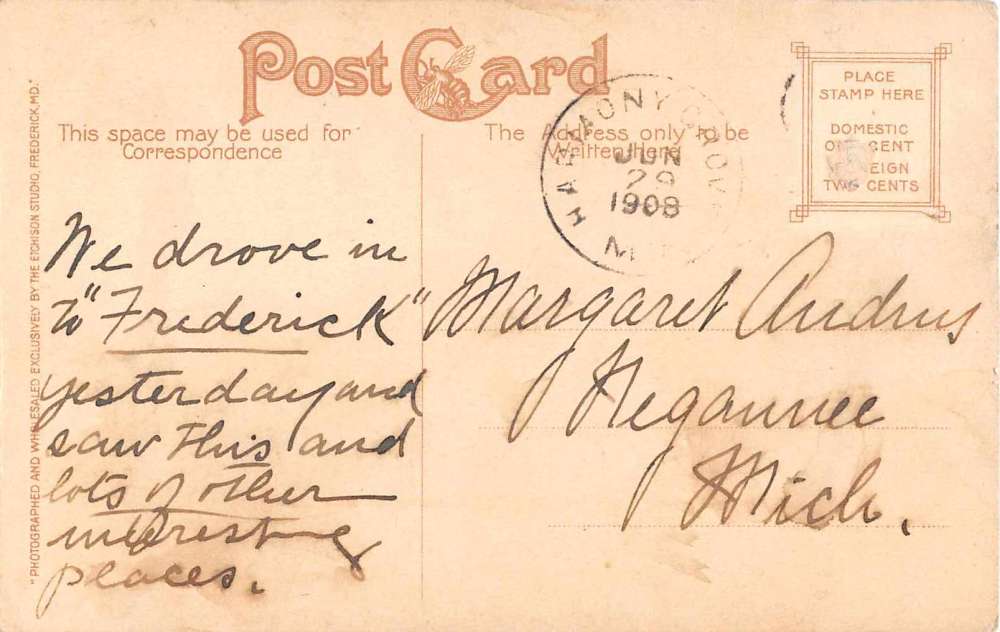 Post Card
This space may be used for
Correspondence
The Address only to be
Written Here
PLACE
STAMP HERE
DOMESTIC
ONE CENT
FOREIGN
TWO CENTS
HARMONY GROVE
JUN
29
1908
MD
"PHOTOGRAPHED AND WHOLESALED EXCLUSIVELY BY THE ETCHISON STUDIO, FREDERICK, MD."
We drove in
to "Frederick"
yesterday and
saw this and
lots of other
interesting
places.
Margaret Andrus
Negaunee
Mich.